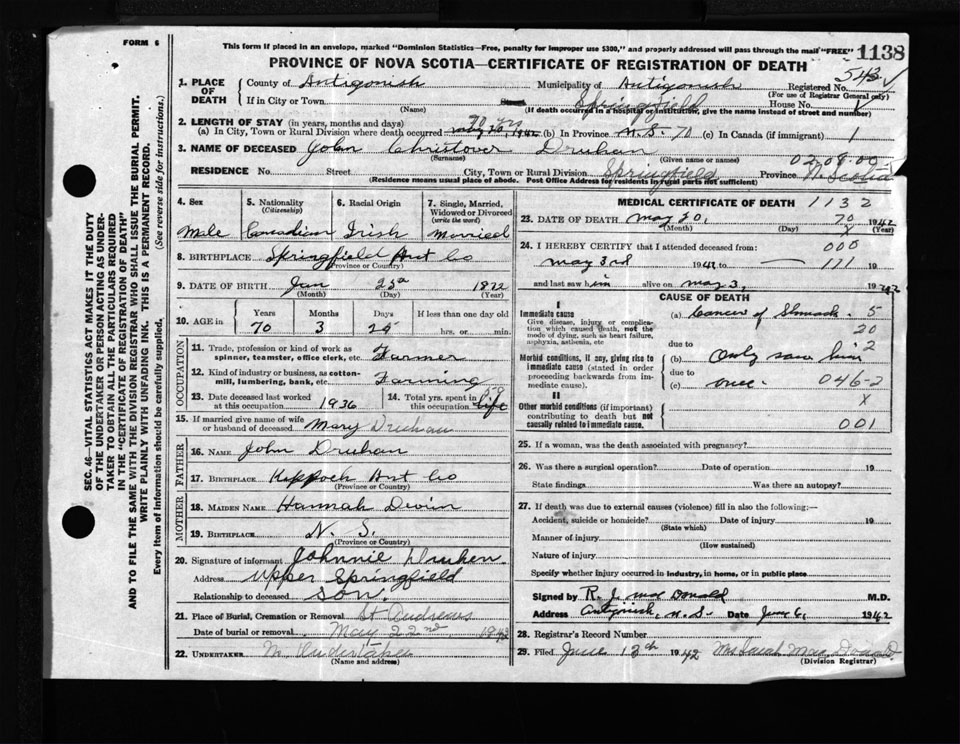 FORM 6
This form if placed in an envelope, marked "Dominion Statistics—Free, penalty for improper use $300," and properly addressed will pass through the mail "FREE"
1138
PROVINCE OF NOVA SCOTIA—CERTIFICATE OF REGISTRATION OF DEATH
543 ✓
1. PLACE OF DEATH
County of Antigonish Municipality of Antigonish Registered No.
(For use of Registrar General only)
If in City or Town Springfield House No.
(Name) (If death occurred in a hospital or institution, give the name instead of street and number)
2. LENGTH OF STAY (in years, months and days) 70 yrs
(a) In City, Town or Rural Division where death occurred May 20, 1942 (b) In Province N.S. 70 (c) In Canada (if immigrant)
3. NAME OF DECEASED John Christover Druhan
(Surname) (Given name or names)
02.08.00
RESIDENCE No. Street City, Town or Rural Division Springfield Province N. Scotia
(Residence means usual place of abode. Post Office Address for residents in rural parts not sufficient)
4. Sex 5. Nationality (Citizenship) 6. Racial Origin 7. Single, Married, Widowed or Divorced (write the word)
Male Canadian Irish Married
8. BIRTHPLACE Springfield Ant Co
(Province or Country)
9. DATE OF BIRTH Jan 25th 1872
(Month) (Day) (Year)
10. AGE in Years Months Days If less than one day old
70 3 25 hrs. or min.
OCCUPATION
11. Trade, profession or kind of work as spinner, teamster, office clerk, etc. Farmer
12. Kind of industry or business, as cotton-mill, lumbering, bank, etc. Farming
13. Date deceased last worked at this occupation 1936
14. Total yrs. spent in this occupation 50 life
15. If married give name of wife or husband of deceased Mary Druhan
FATHER
16. NAME John Druhan
17. BIRTHPLACE Keppoch Ant Co
(Province or Country)
MOTHER
18. MAIDEN NAME Hannah
19. BIRTHPLACE N. S.
(Province or Country)
20. Signature of informant Johnnie Druhen
Address Upper Springfield
Relationship to deceased Son.
21. Place of Burial, Cremation or Removal St Andrews
Date of burial or removal May 22nd 1942
22. UNDERTAKER No Undertaker
(Name and address)
MEDICAL CERTIFICATE OF DEATH 1132
23. DATE OF DEATH May 20, 70 1942
(Month) (Day) X (Year)
24. I HEREBY CERTIFY that I attended deceased from: 000
May 3rd 1942 to — 171 19
and last saw him alive on May 3, 1942
CAUSE OF DEATH
I
Immediate cause
Give disease, injury or complication which caused death, not the mode of dying, such as heart failure, asphyxia, asthenia, etc
(a) Cancer of Stomach. 5
20
due to 2
Morbid conditions, if any, giving rise to immediate cause (stated in order proceeding backwards from immediate cause).
(b) Only saw him
due to
(c) once. 046-2
II
X
Other morbid conditions (if important) contributing to death but not causally related to immediate cause.
001
25. If a woman, was the death associated with pregnancy?
26. Was there a surgical operation? Date of operation 19
State findings Was there an autopsy?
27. If death was due to external causes (violence) fill in also the following:—
Accident, suicide or homicide? Date of injury 19
(State which)
Manner of injury
(How sustained)
Nature of injury
Specify whether injury occurred in industry, in home, or in public place
Signed by R. J. Mac Donald M.D.
Address Antigonish, N.S. Date June 6, 1942
28. Registrar's Record Number
29. Filed June 13th 1942 Mrs Sarah Mac Donald
(Division Registrar)
SEC. 46—VITAL STATISTICS ACT MAKES IT THE DUTY
OF THE UNDERTAKER OR PERSON ACTING AS UNDER-
TAKER TO OBTAIN ALL THE PARTICULARS REQUIRED
IN THE "CERTIFICATE OF REGISTRATION OF DEATH"
AND TO FILE THE SAME WITH THE DIVISION REGISTRAR WHO SHALL ISSUE THE BURIAL PERMIT.
WRITE PLAINLY WITH UNFADING INK. THIS IS A PERMANENT RECORD.
Every item of information should be carefully supplied. (See reverse side for instructions.)